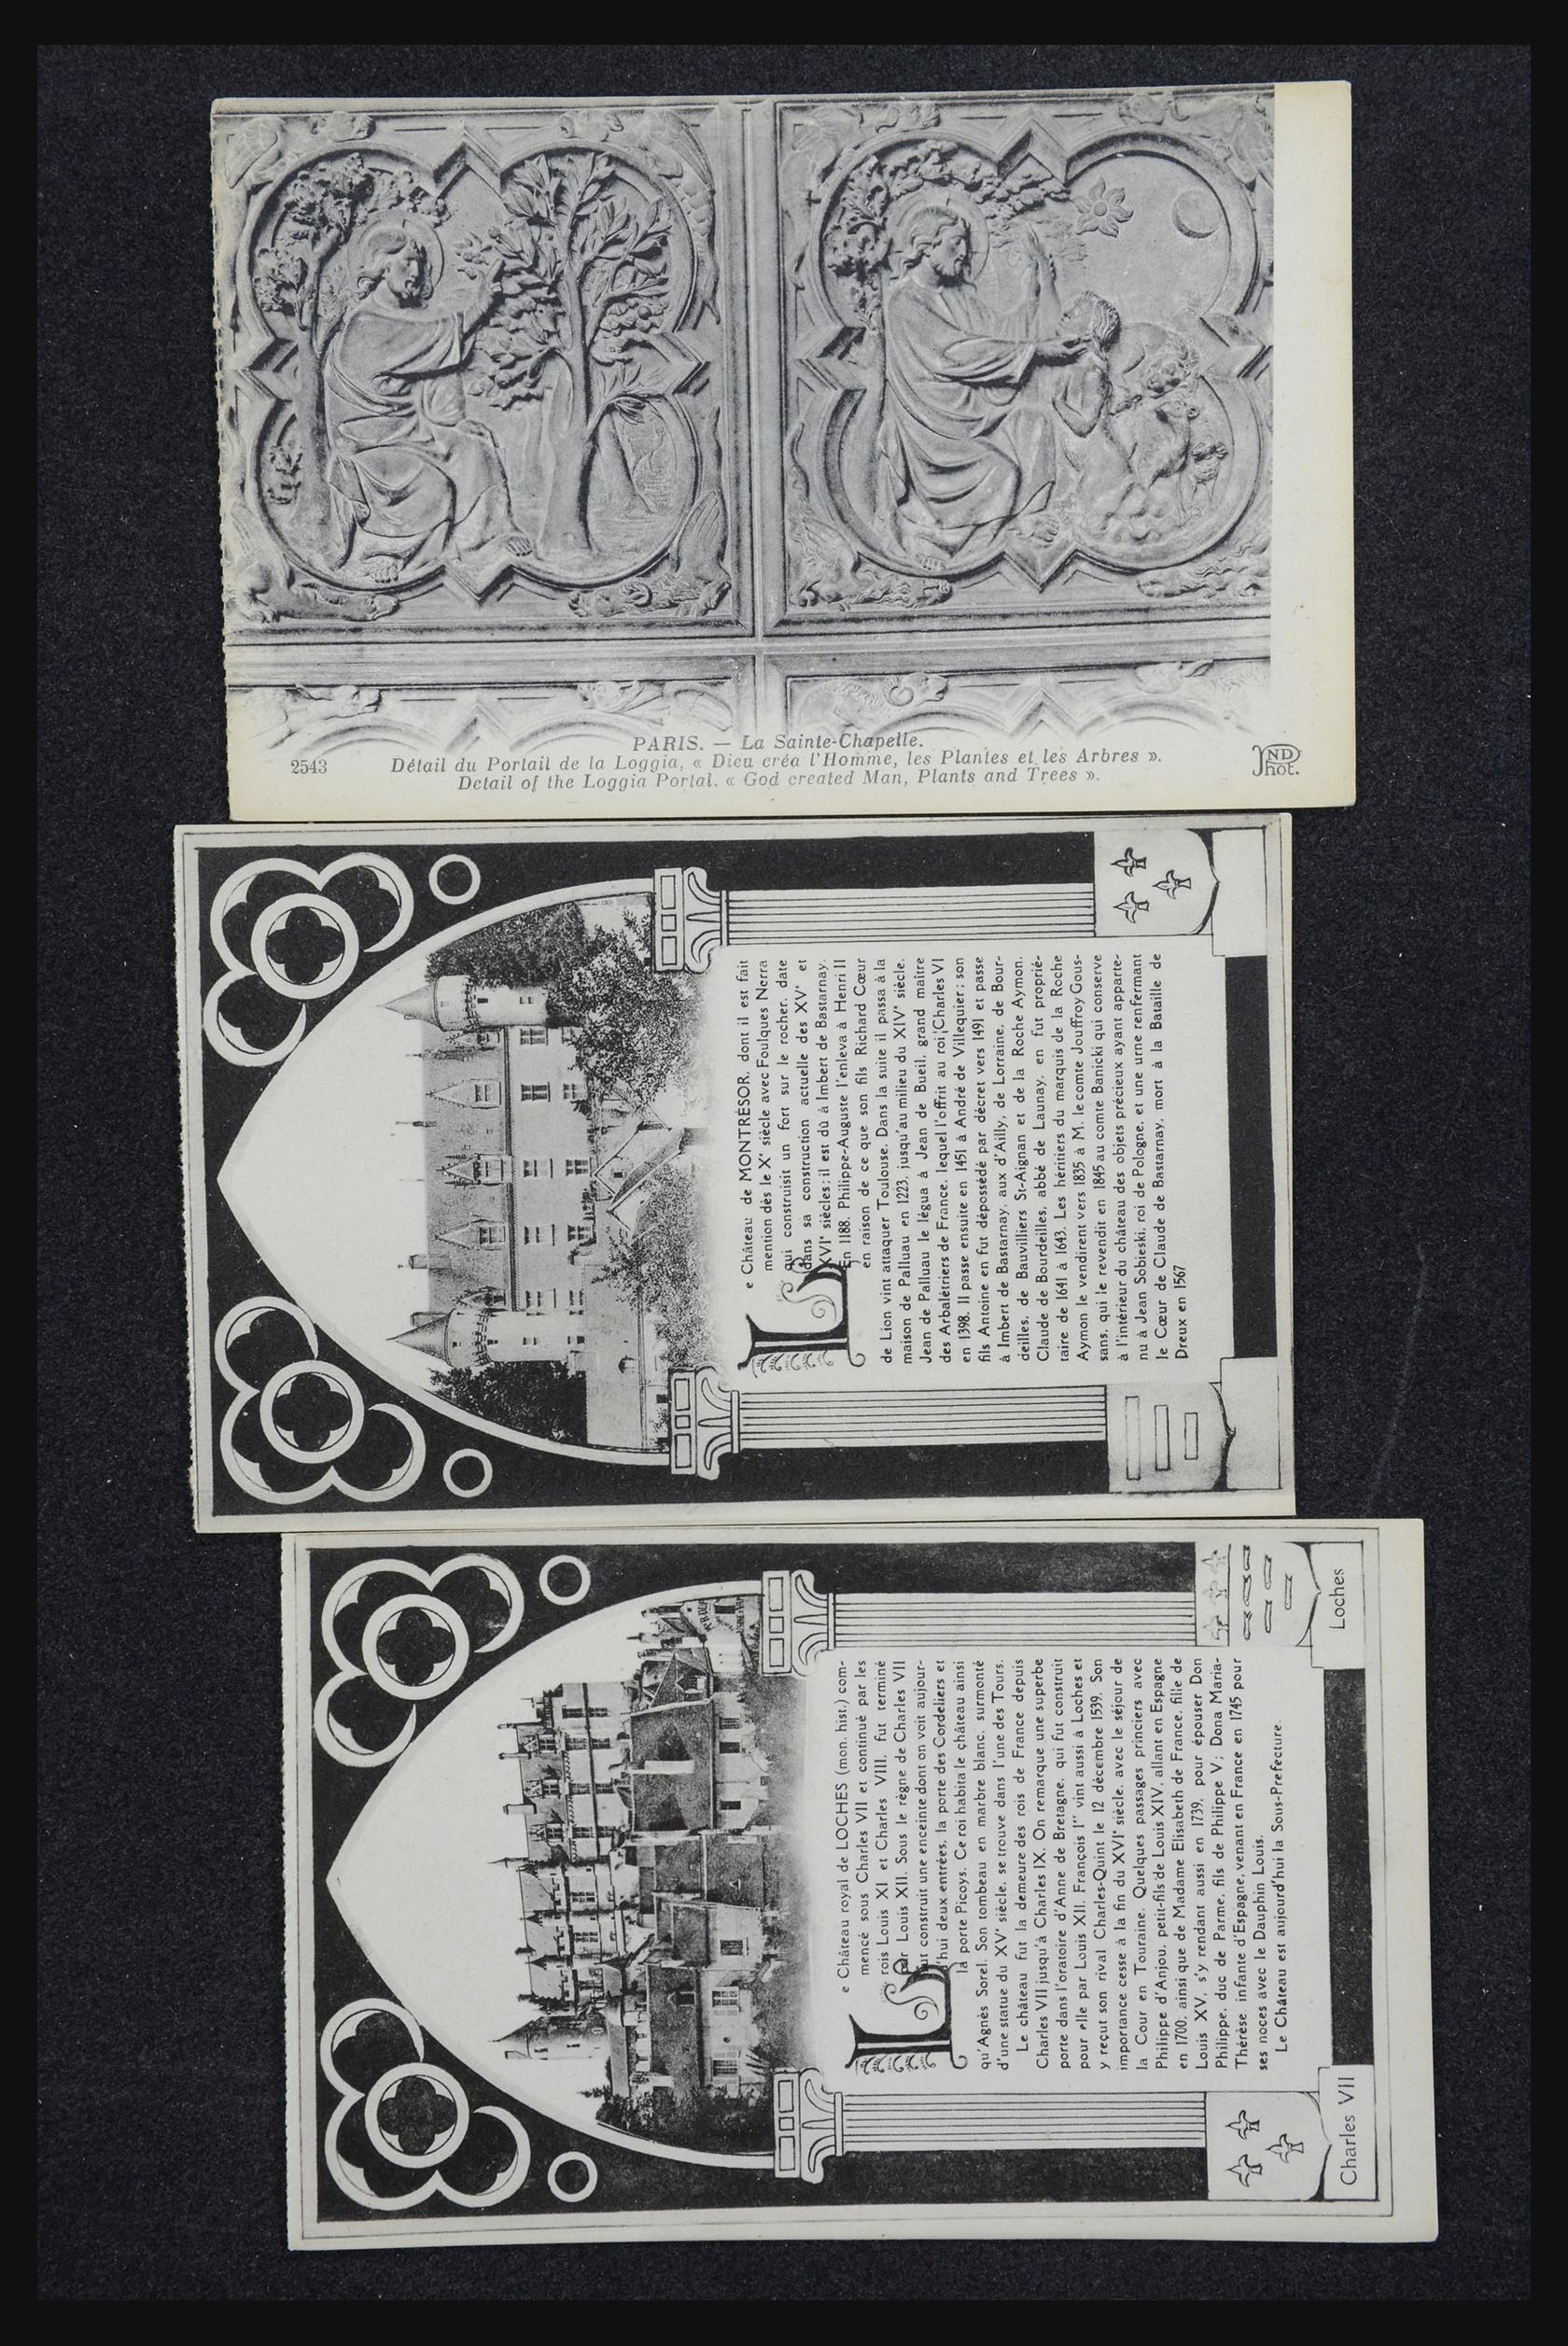 PARIS. — La Sainte-Chapelle.
2543 Détail du Portail de la Loggia, « Dieu créa l'Homme, les Plantes et les Arbres ».
Detail of the Loggia Portal. « God created Man, Plants and Trees ».
ND
Phot.
Le Château de MONTRÉSOR, dont il est fait
mention dès le Xe siècle avec Foulques Nerra
qui construisit un fort sur le rocher, date
dans sa construction actuelle des XVe et
XVIe siècles; il est dû à Imbert de Bastarnay.
En 1188, Philippe-Auguste l'enleva à Henri II
en raison de ce que son fils Richard Cœur
de Lion vint attaquer Toulouse. Dans la suite il passa à la
maison de Palluau en 1223, jusqu'au milieu du XIVe siècle.
Jean de Palluau le légua à Jean de Bueil, grand maître
des Arbalétriers de France, lequel l'offrit au roi Charles VI
en 1398. Il passe ensuite en 1451 à André de Villequier; son
fils Antoine en fut dépossédé par décret vers 1491 et passe
à Imbert de Bastarnay, aux d'Ailly, de Lorraine, de Bour-
deilles, de Bauvilliers St-Aignan et de la Roche Aymon.
Claude de Bourdeilles, abbé de Launay, en fut proprié-
taire de 1641 à 1643. Les héritiers du marquis de la Roche
Aymon le vendirent vers 1835 à M. le comte Jouffroy Gous-
sans, qui le revendit en 1845 au comte Banicki qui conserve
à l'intérieur du château des objets précieux ayant apparte-
nu à Jean Sobieski, roi de Pologne, et une urne renfermant
le Cœur de Claude de Bastarnay, mort à la Bataille de
Dreux en 1567
Le Château royal de LOCHES (mon. hist.) com-
mencé sous Charles VII et continué par les
rois Louis XI et Charles VIII, fut terminé
par Louis XII. Sous le règne de Charles VII
fut construit une enceinte dont on voit aujour-
d'hui deux entrées, la porte des Cordeliers et
la porte Picoys. Ce roi habita le château ainsi
qu'Agnès Sorel. Son tombeau en marbre blanc, surmonté
d'une statue du XVe siècle, se trouve dans l'une des Tours.
Le château fut la demeure des rois de France depuis
Charles VII jusqu'à Charles IX. On remarque une superbe
porte dans l'oratoire d'Anne de Bretagne, qui fut construit
pour elle par Louis XII. François Ier vint aussi à Loches et
y reçut son rival Charles-Quint le 12 décembre 1539. Son
importance cesse à la fin du XVIe siècle, avec le séjour de
la Cour en Touraine. Quelques passages princiers avec
Philippe d'Anjou, petit-fils de Louis XIV, allant en Espagne
en 1700, ainsi que de Madame Elisabeth de France, fille de
Louis XV, s'y rendant aussi en 1739, pour épouser Don
Philippe, duc de Parme, fils de Philippe V; Dona Maria-
Thérèse, infante d'Espagne, venant en France en 1745 pour
ses noces avec le Dauphin Louis.
Le Château est aujourd'hui la Sous-Préfecture.
Charles VII
Loches